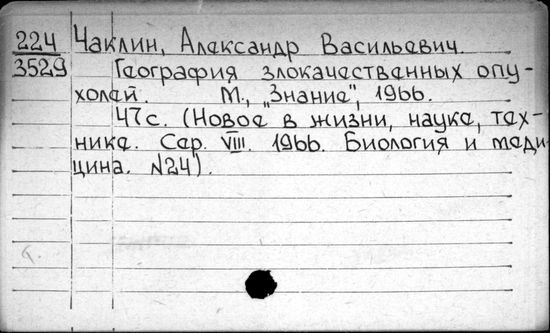 224 Чаклин, Александр Васильевич.
3529 География злокачественных опу-
холей. М., „Знание", 1966.
47с. (Новое в жизни, науке, тех-
нике. Сер. VIII. 1966. Биология и меди-
цина. N24).